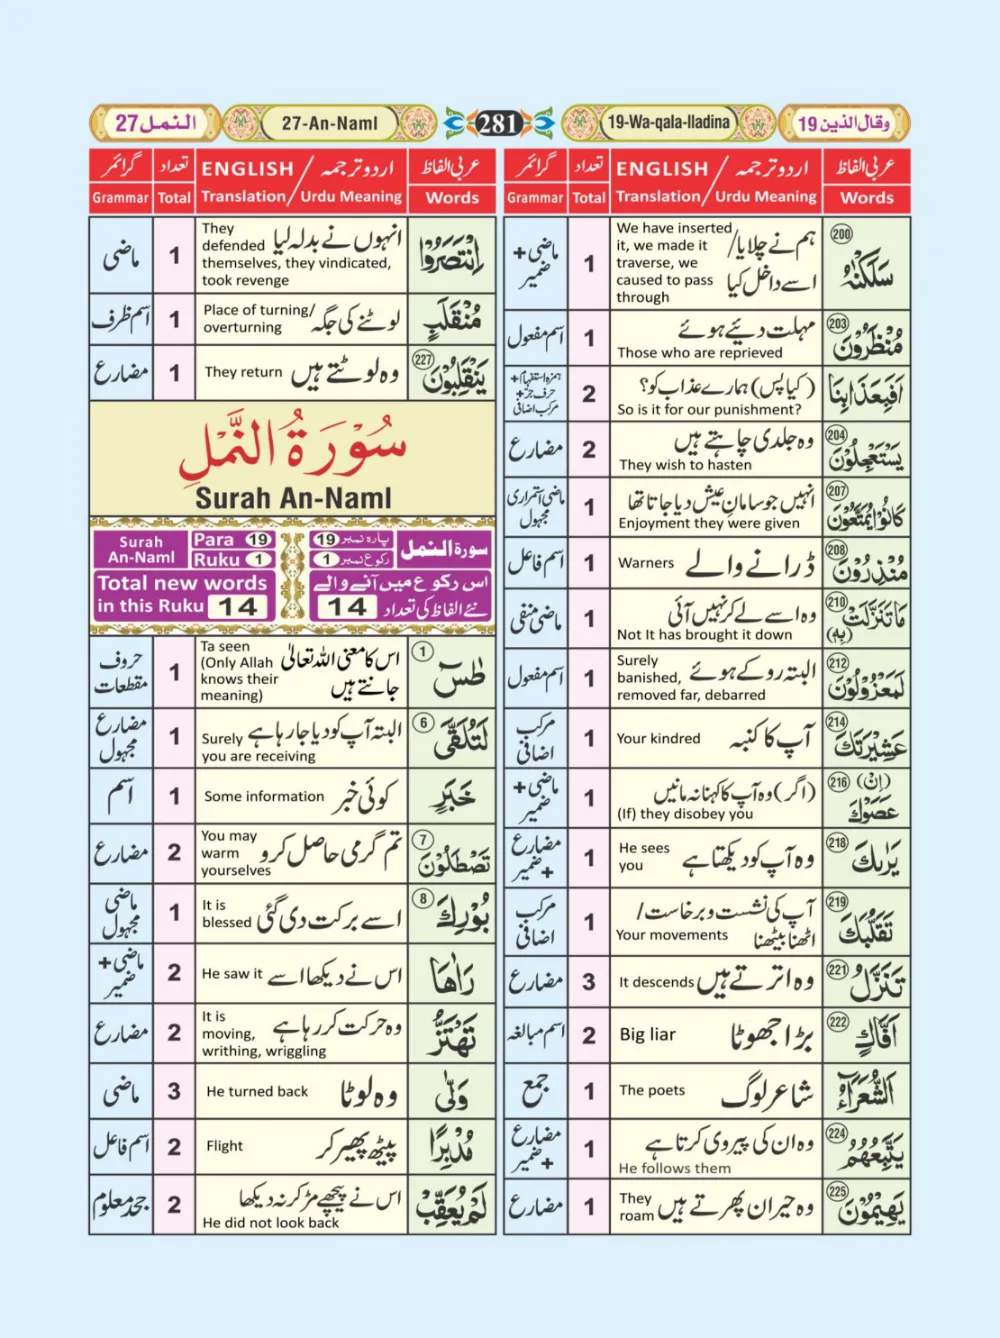 النمل 27
27-An-Naml
281
19-Wa-qala-lladina
وقال الذين 19
عربی الفاظ اردو ترجمہ / ENGLISH تعداد گرائمر
Words Urdu Meaning / Translation Total Grammar
200 سَلَكْنٰهُ
ہم نے چلایا/ اسے داخل کیا
We have inserted it, we made it traverse, we caused to pass through
1
ماضی + ضمیر
203 مُنْظَرُوْنَ
مہلت دئیے ہوئے
Those who are reprieved
1
اسم مفعول
اَفَبِعَذَابِنَا
(کیا پس) ہمارے عذاب کو؟
So is it for our punishment?
2
ہمزہ استفہام + حرف جر + مرکب اضافی
204 يَسْتَعْجِلُوْنَ
وہ جلدی چاہتے ہیں
They wish to hasten
2
مضارع
207 كَانُوْا يُمَتَّعُوْنَ
انہیں جو سامانِ عیش دیا جاتا تھا
Enjoyment they were given
1
ماضی استمراری مجہول
208 مُنْذِرُوْنَ
ڈرانے والے
Warners
1
اسم فاعل
210 مَا تَنَزَّلَتْ (بِهِ)
وہ اسے لے کر نہیں آئی
Not It has brought it down
1
ماضی منفی
212 لَمَعْزُوْلُوْنَ
البتہ روکے ہوئے
Surely banished, removed far, debarred
1
اسم مفعول
214 عَشِيْرَتَكَ
آپ کا کنبہ
Your kindred
1
مرکب اضافی
216 (اِنْ) عَصَوْكَ
(اگر) وہ آپ کا کہنا نہ مانیں
(If) they disobey you
1
ماضی + ضمیر
218 يَرٰىكَ
وہ آپ کو دیکھتا ہے
He sees you
1
مضارع + ضمیر
219 تَقَلُّبَكَ
آپ کی نشست و برخاست/ اٹھنا بیٹھنا
Your movements
1
مرکب اضافی
221 تَنَزَّلُ
وہ اترتے ہیں
It descends
3
مضارع
222 اَفَّاكٍ
بڑا جھوٹا
Big liar
2
اسم مبالغہ
اَلشُّعَرَآءُ
شاعر لوگ
The poets
1
جمع
224 يَتَّبِعُهُمُ
وہ ان کی پیروی کرتا ہے
He follows them
1
مضارع + ضمیر
225 يَهِيْمُوْنَ
وہ حیران پھرتے ہیں
They roam
1
مضارع
عربی الفاظ اردو ترجمہ / ENGLISH تعداد گرائمر
Words Urdu Meaning / Translation Total Grammar
اِنْتَصَرُوْا
انہوں نے بدلہ لیا
They defended themselves, they vindicated, took revenge
1
ماضی
مُنْقَلَبٍ
لوٹنے کی جگہ
Place of turning/ overturning
1
اسم ظرف
227 يَنْقَلِبُوْنَ
وہ لوٹتے ہیں
They return
1
مضارع
سُوْرَةُ النَّمْلِ
Surah An-Naml
Surah An-Naml
Para 19
Ruku 1
پارہ نمبر 19
رکوع نمبر 1
سورۃ النمل
Total new words in this Ruku 14
اس رکوع میں آنے والے نئے الفاظ کی تعداد 14
1 طٰسٓ
اس کا معنی اللہ تعالیٰ جانتے ہیں
Ta seen (Only Allah knows their meaning)
1
حروف مقطعات
6 لَتُلَقَّى
البتہ آپ کو دیا جا رہا ہے
Surely you are receiving
1
مضارع مجہول
خَبَرٍ
کوئی خبر
Some information
1
اسم
7 تَصْطَلُوْنَ
تم گرمی حاصل کرو
You may warm yourselves
2
مضارع
8 بُوْرِكَ
اسے برکت دی گئی
It is blessed
1
ماضی مجہول
رَاٰهَا
اس نے دیکھا اسے
He saw it
2
ماضی + ضمیر
تَهْتَزُّ
وہ حرکت کر رہا ہے
It is moving, writhing, wriggling
2
مضارع
وَلّٰى
وہ لوٹا
He turned back
3
ماضی
مُدْبِرًا
پیٹھ پھیر کر
Flight
2
اسم فاعل
لَمْ يُعَقِّبْ
اس نے پیچھے مڑ کر نہ دیکھا
He did not look back
2
جحد معلوم